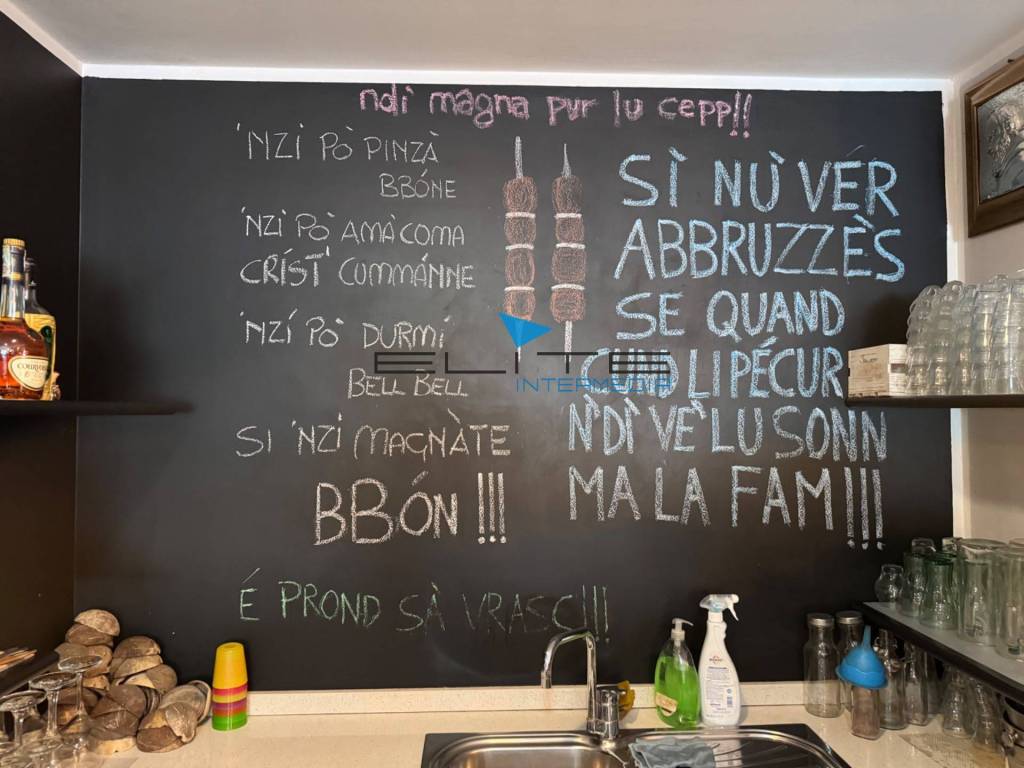 ndì magna pur lu cepp!!
'NZI PÒ PINZÀ
BBÓNE
'NZÌ PÒ AMÀ COMA
CRÍST' CUMMÁNNE
'NZÍ PÒ DURMÌ
BELL BELL
SI 'NZI MAGNÀTE
BBÓN !!!
SÌ NÙ VÉR
ABBRUZZÈS
SE QUAND
LI PÉCUR
N'DÌ VÈ LU SONN
MA LA FAM!!!
É PROND SÀ VRASC!!!
ELITES
INTERMEDIA